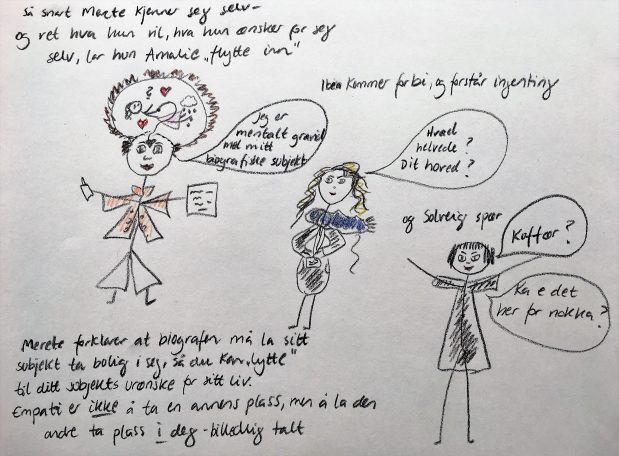 Så snart Merete kjenner seg selv -
og vet hva hun vil, hva hun ønsker for seg
selv, lar hun Amalie "flytte inn"
?
Jeg er
mentalt gravid
med mitt
biografiske subjekt
Iben kommer forbi, og forstår ingenting
Hvad
helvede?
Dit hoved?
og Solveig spør
Kaffær?
Ka e det
her for nokka?
Merete forklarer at biografen må la sitt
subjekt ta bolig i seg, så du kan "lytte"
til ditt subjekts urønske for sitt liv.
Empati er ikke å ta en annens plass, men å la den
andre ta plass i deg - billedlig talt